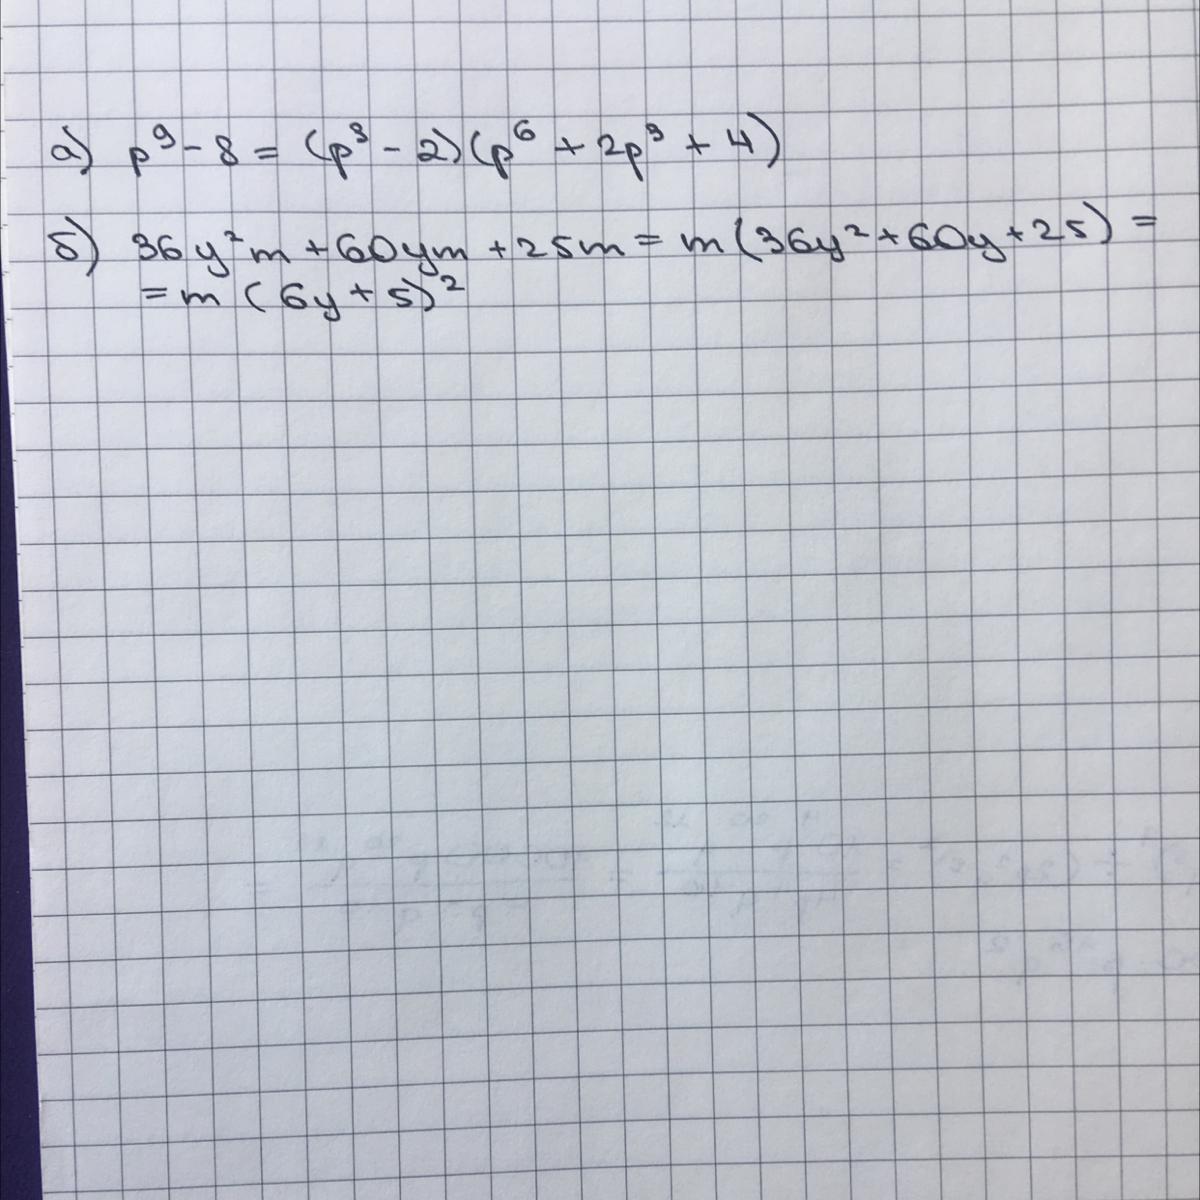 а) p⁹ - 8 = (p³ - 2)(p⁶ + 2p³ + 4)
б) 36y²m + 60ym + 25m = m(36y² + 60y + 25) =
= m (6y + 5)²